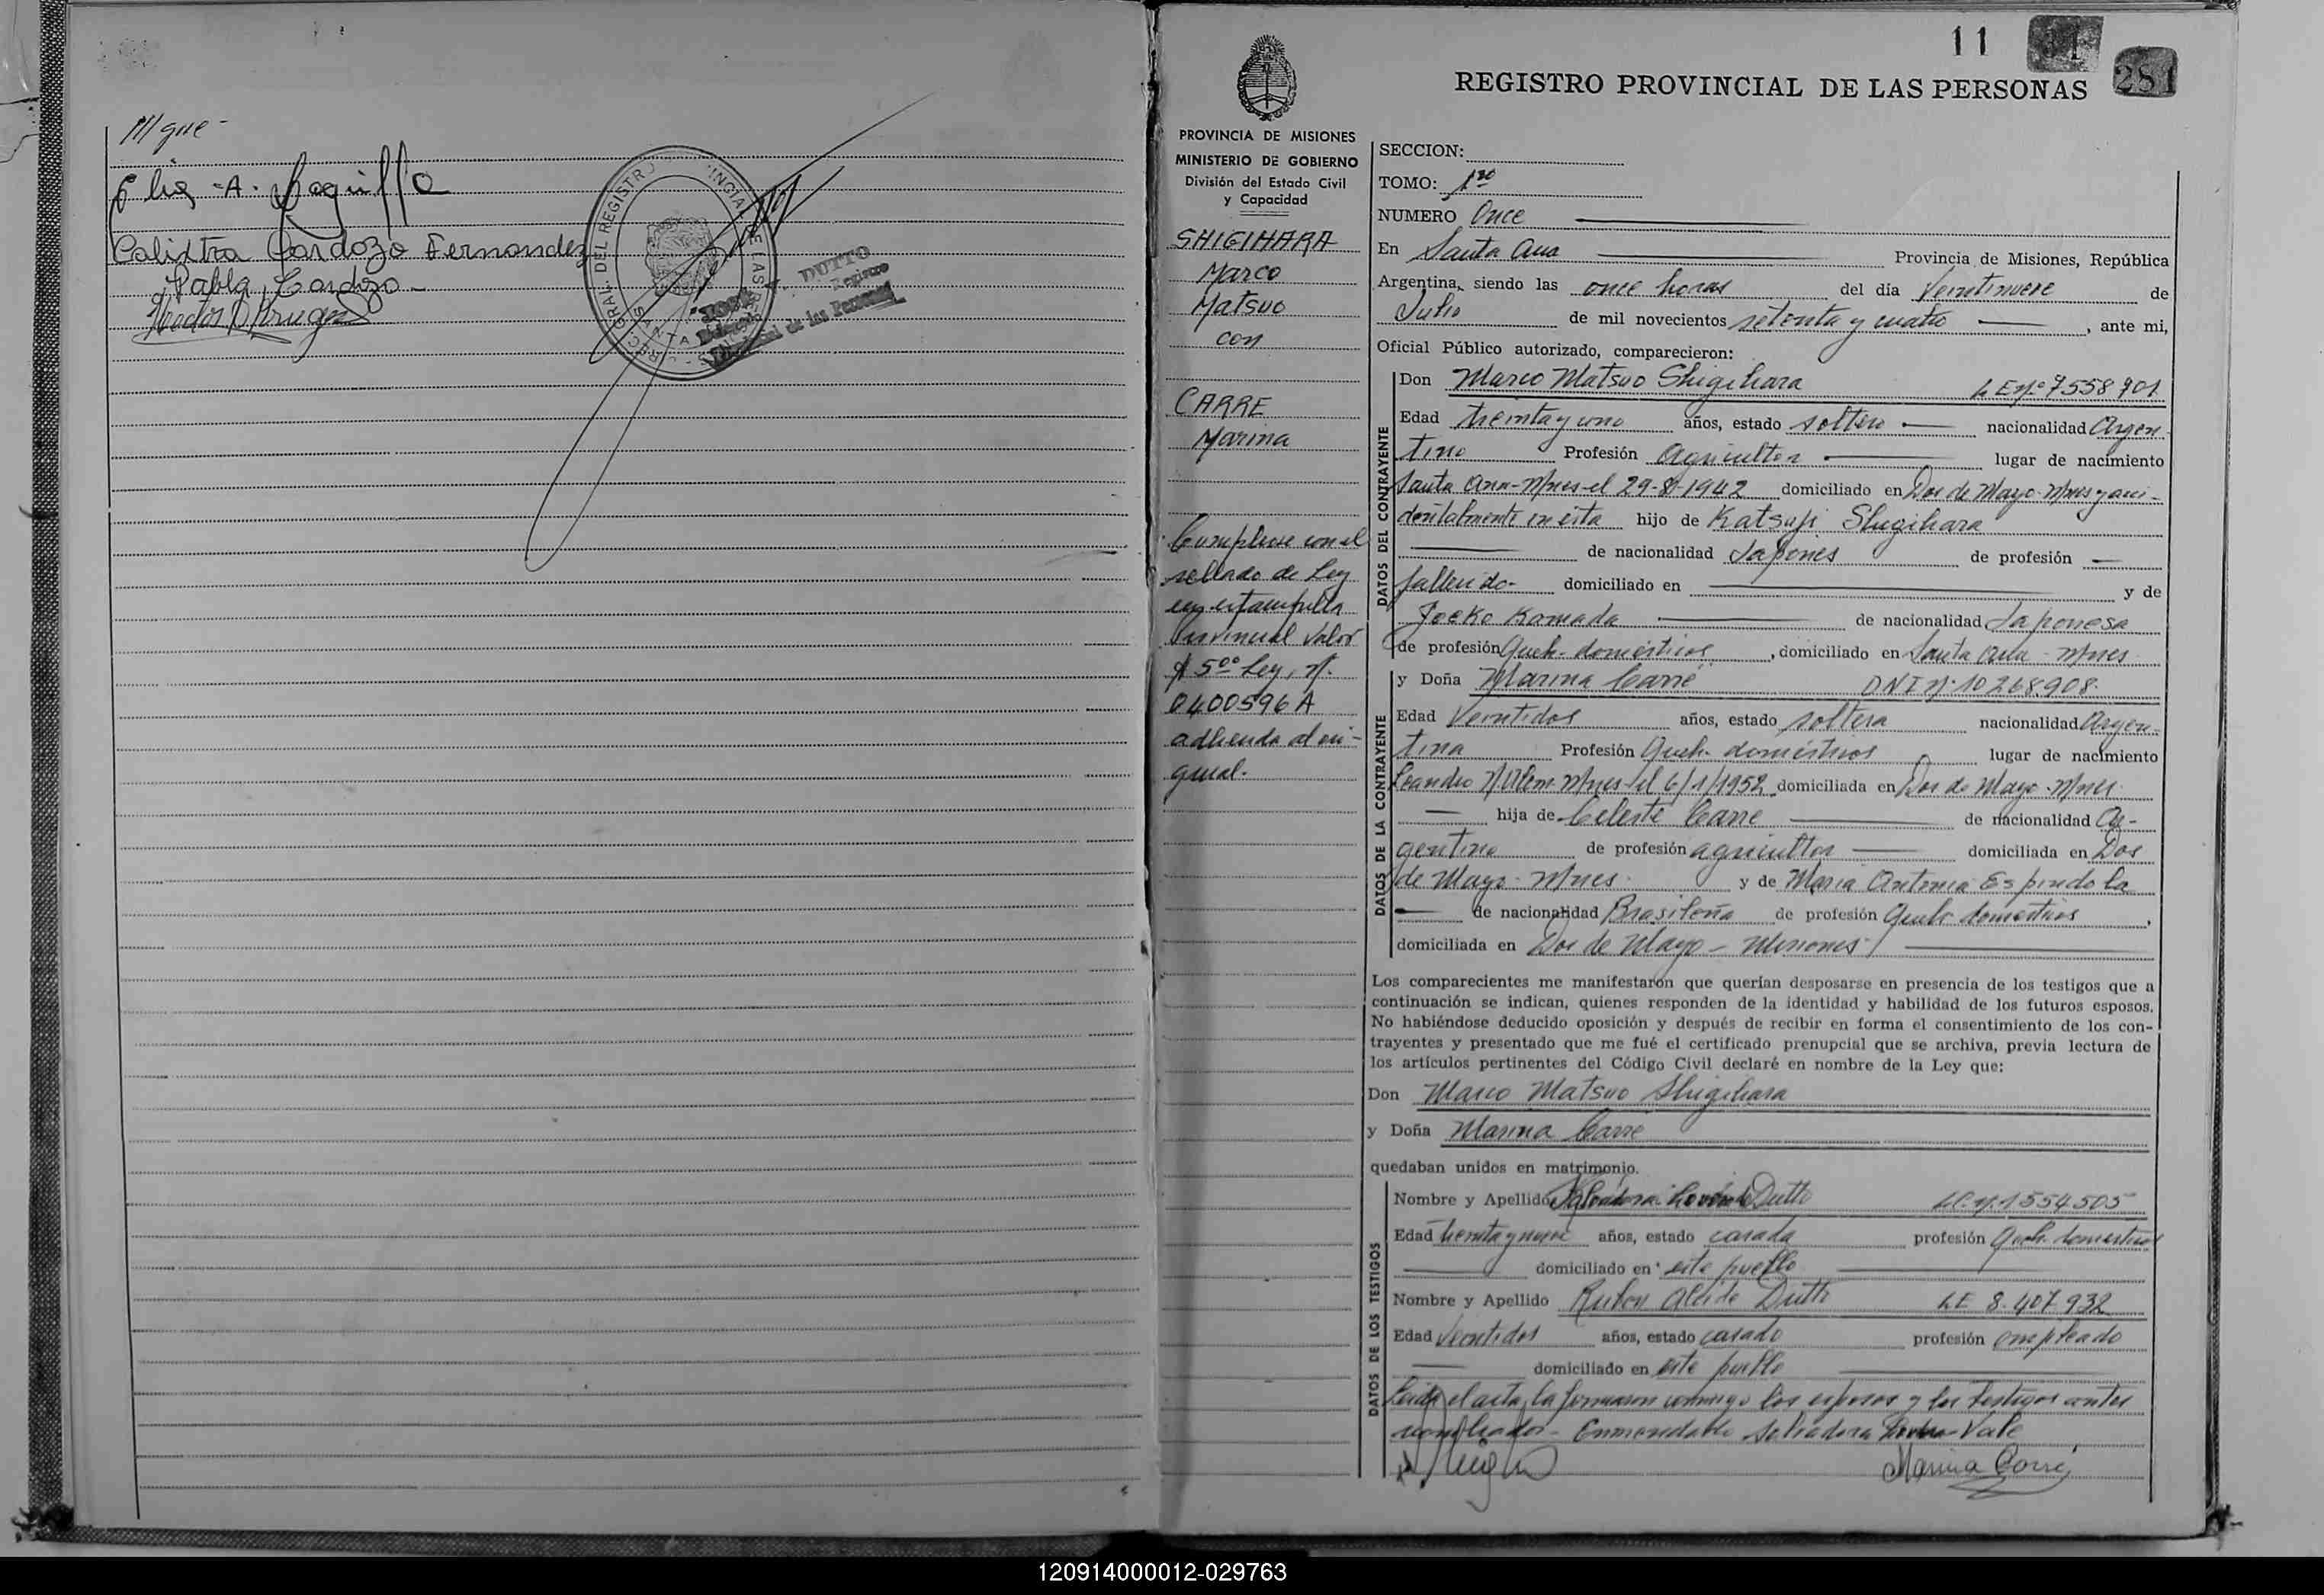 Calixtra Cardozo Fernandez
Pabla Cardozo
DUTTO
11
281
REGISTRO PROVINCIAL DE LAS PERSONAS
PROVINCIA DE MISIONES
MINISTERIO DE GOBIERNO
División del Estado Civil
y Capacidad
SHIGIHARA
Marco
Matsuo
con
CARRE
Marina
Cumplese con el
sellado de Ley
en estampilla
Provincial valor
$ 5oo Ley, nº
0400596 A
adherida al ori-
ginal.
SECCION:
TOMO: 1ro
NUMERO Once
En Santa Ana Provincia de Misiones, República
Argentina, siendo las once horas del día Veintinueve de
Julio de mil novecientos setenta y cuatro, ante mi,
Oficial Público autorizado, comparecieron:
DATOS DEL CONTRAYENTE
Don Marco Matsuo Shigihara L E nº 7558901
Edad treinta y uno años, estado soltero nacionalidad Argen-
tino Profesión Agricultor lugar de nacimiento
Santa Ana-Mnes-el 29-8-1942 domiciliado en Dos de Mayo-Mnes y acci-
dentalmente en esta hijo de Katsuji Shigihara
de nacionalidad Japonés de profesión
fallecido- domiciliado en y de
Kamada de nacionalidad Japonesa
de profesión Queh. domésticos, domiciliado en Santa Ana - Mnes
DATOS DE LA CONTRAYENTE
y Doña Marina Carré D N I nº 10268908.
Edad Veintidos años, estado soltera nacionalidad Argen-
tina Profesión Queh. domésticos lugar de nacimiento
Leandro N. Alem-Mnes-el 6/1/1952, domiciliada en Dos de Mayo-Mnes
hija de Celeste Carre de nacionalidad Ar-
gentino de profesión agricultor domiciliada en Dos
de Mayo-Mnes. y de Maria Antonia Espindola
de nacionalidad Brasileña de profesión Queh. domesticos,
domiciliada en Dos de Mayo - Misiones-
Los comparecientes me manifestarón que querían desposarse en presencia de los testigos que a
continuación se indican, quienes responden de la identidad y habilidad de los futuros esposos.
No habiéndose deducido oposición y después de recibir en forma el consentimiento de los con-
trayentes y presentado que me fué el certificado prenupcial que se archiva, previa lectura de
los artículos pertinentes del Código Civil declaré en nombre de la Ley que:
Don Marco Matsuo Shigihara
y Doña Marina Carre
quedaban unidos en matrimonio.
DATOS DE LOS TESTIGOS
Nombre y Apellido Salvadora Dutto LC. nº. 1554505
Edad treinta y nueve años, estado casada profesión Queh. domesticos
domiciliado en este pueblo
Nombre y Apellido Ruben Alcide Dutto L E 8.407.932
Edad Veintidos años, estado casado profesión empleado
domiciliado en este pueblo
Leida el acta, la firmaron conmigo los esposos y los testigos antes
nombrados- Enmendado Salvadora Vale
Marina Carré
120914000012-029763